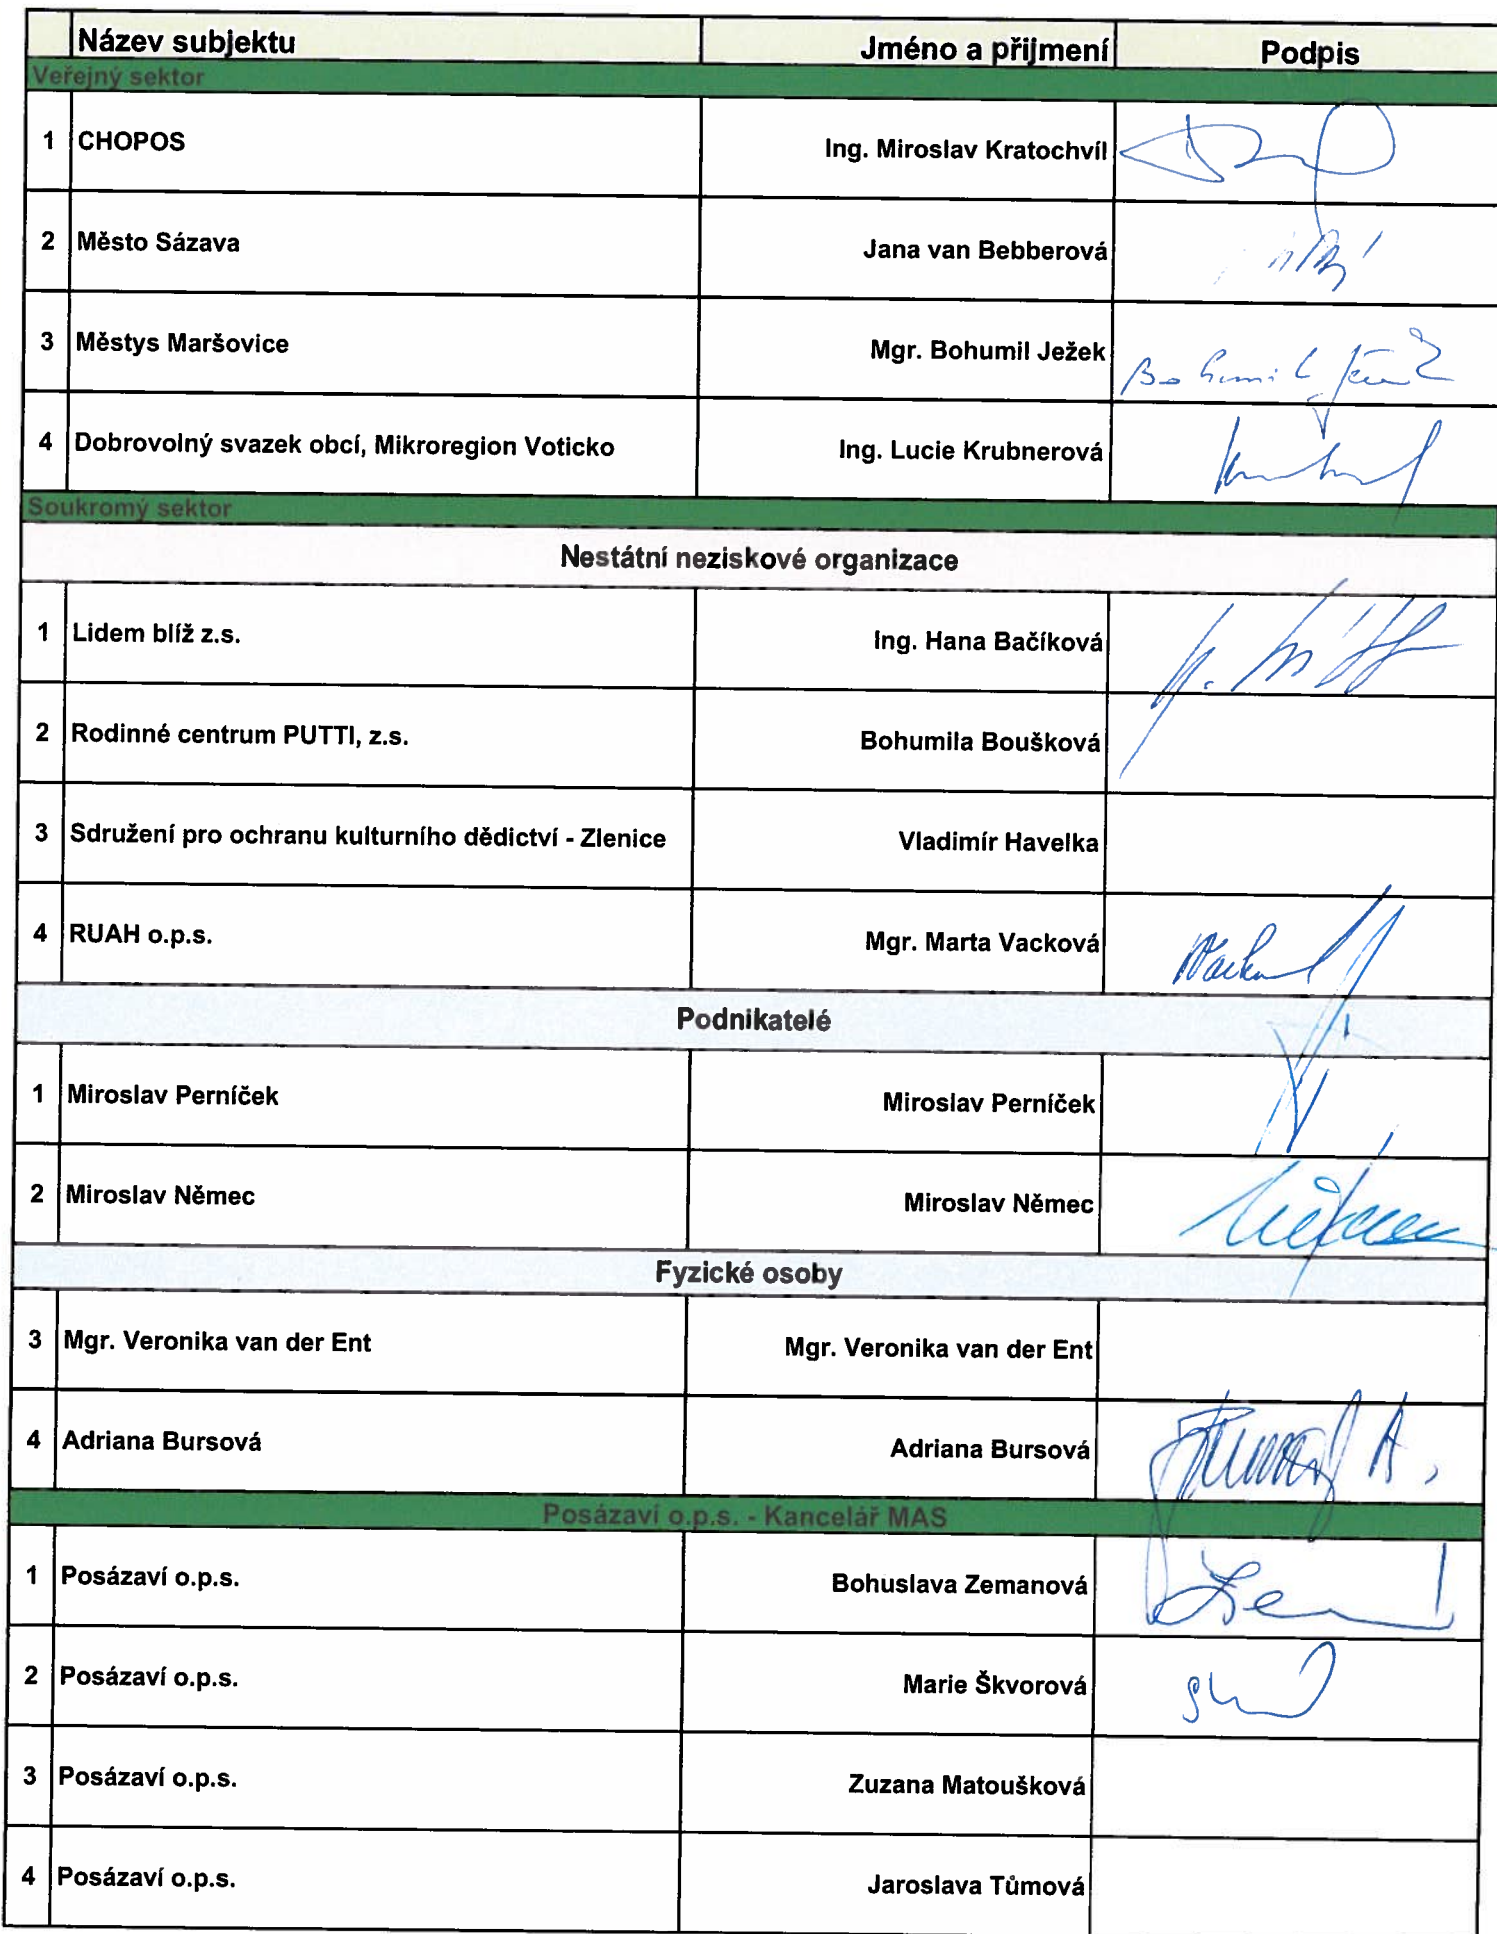 Název subjektu Jméno a přijmení Podpis
Veřejný sektor
1 CHOPOS Ing. Miroslav Kratochvíl
2 Město Sázava Jana van Bebberová
3 Městys Maršovice Mgr. Bohumil Ježek
4 Dobrovolný svazek obcí, Mikroregion Voticko Ing. Lucie Krubnerová
Soukromý sektor
Nestátní neziskové organizace
1 Lidem blíž z.s. Ing. Hana Bačíková
2 Rodinné centrum PUTTI, z.s. Bohumila Boušková
3 Sdružení pro ochranu kulturního dědictví - Zlenice Vladimír Havelka
4 RUAH o.p.s. Mgr. Marta Vacková
Podnikatelé
1 Miroslav Perníček Miroslav Perníček
2 Miroslav Němec Miroslav Němec
Fyzické osoby
3 Mgr. Veronika van der Ent Mgr. Veronika van der Ent
4 Adriana Bursová Adriana Bursová
Posázaví o.p.s. - Kancelář MAS
1 Posázaví o.p.s. Bohuslava Zemanová
2 Posázaví o.p.s. Marie Škvorová
3 Posázaví o.p.s. Zuzana Matoušková
4 Posázaví o.p.s. Jaroslava Tůmová